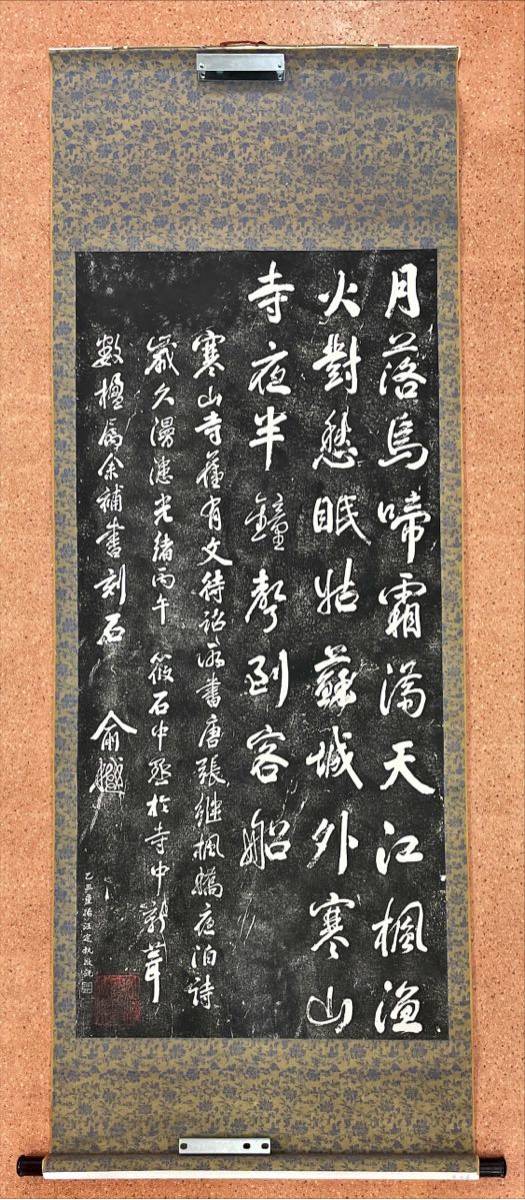 月落烏啼霜満天江楓漁
火對愁眠姑蘇城外寒山
寺夜半鐘聲到客船
寒山寺舊有文待詔所書唐張継楓橋夜泊詩
歲久漫漶光緒丙午筱石中丞於寺中新葺
數楹屬余補書刻石
俞樾